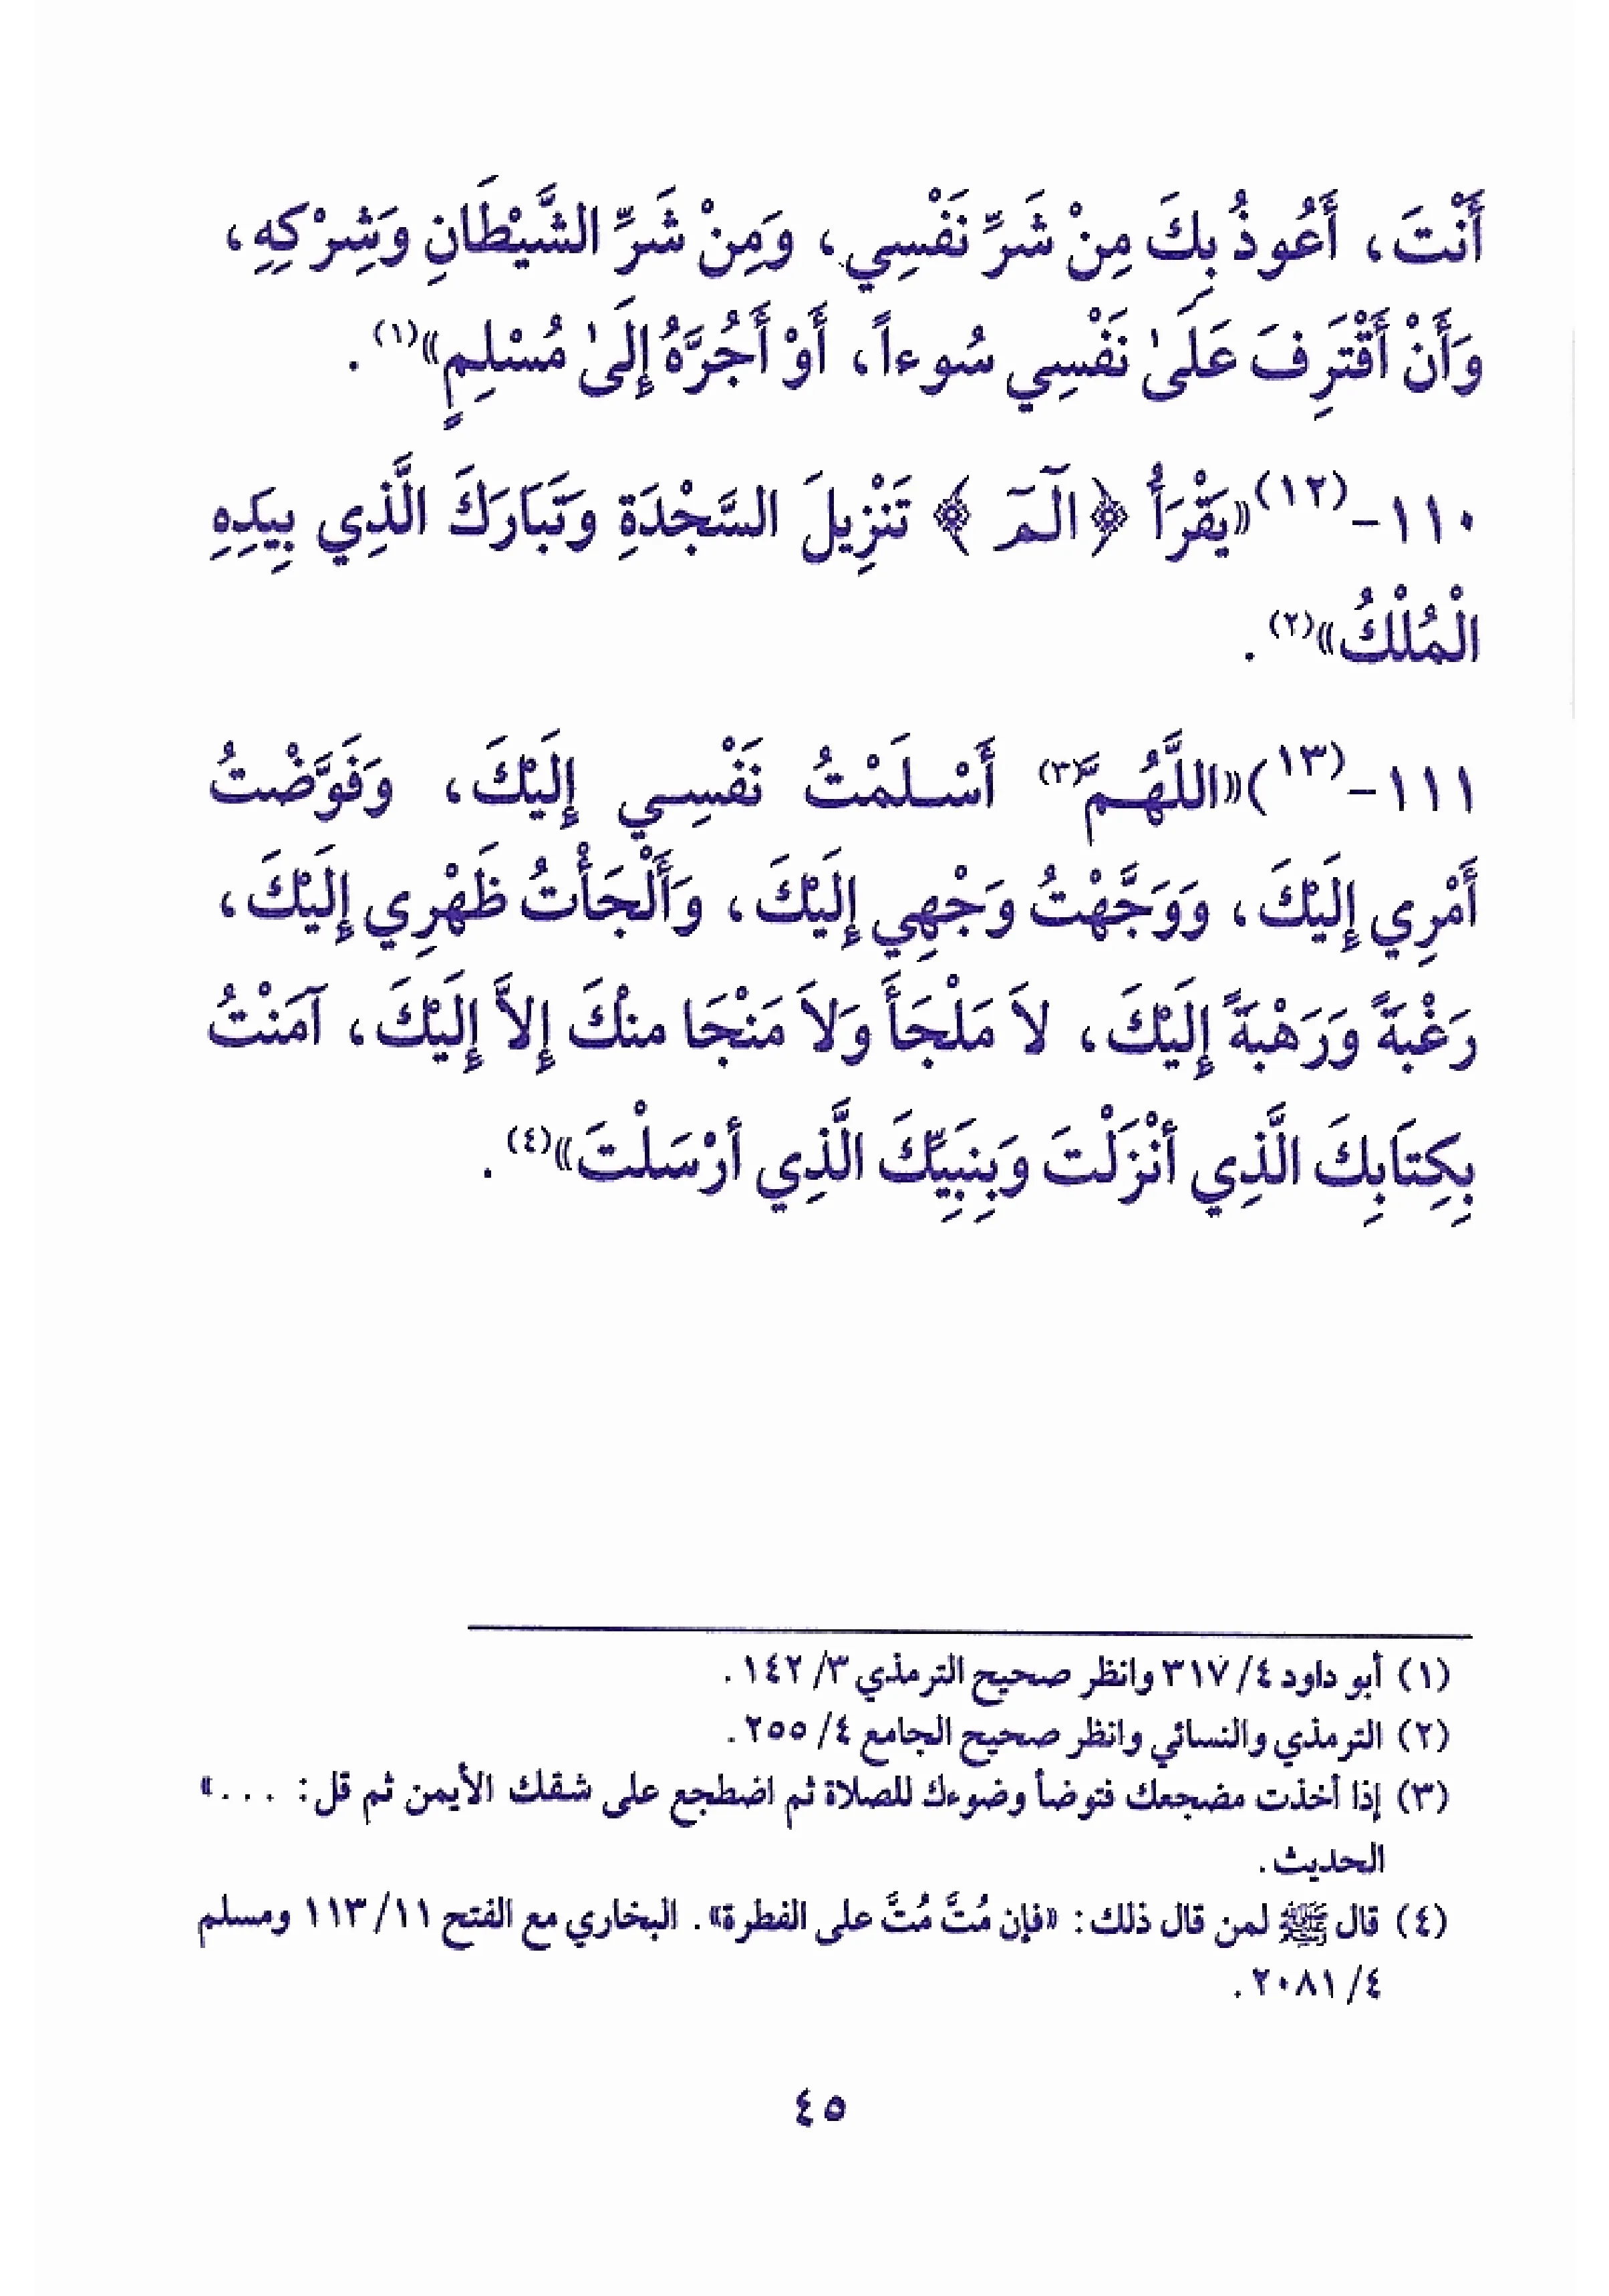 أَنْتَ، أَعُوذُ بِكَ مِنْ شَرِّ نَفْسِي، وَمِنْ شَرِّ الشَّيْطَانِ وَشِرْكِهِ،
وَأَنْ أَقْتَرِفَ عَلَىٰ نَفْسِي سُوءاً، أَوْ أَجُرَّهُ إِلَىٰ مُسْلِمٍ»(١).
١١٠-(١٢)«يَقْرَأُ ﴿الٓـمٓ﴾ تَنْزِيلَ السَّجْدَةِ وَتَبَارَكَ الَّذِي بِيَدِهِ
الْمُلْكُ»(٢).
١١١-(١٣)«اللَّهُـمَّ(٣) أَسْـلَمْتُ نَفْسِـي إِلَيْكَ، وَفَوَّضْتُ
أَمْرِي إِلَيْكَ، وَوَجَّهْتُ وَجْهِي إِلَيْكَ، وَأَلْجَأْتُ ظَهْرِي إِلَيْكَ،
رَغْبَةً وَرَهْبَةً إِلَيْكَ، لاَ مَلْجَأَ وَلاَ مَنْجَا منْكَ إِلاَّ إِلَيْكَ، آمَنْتُ
بِكِتَابِكَ الَّذِي أنْزَلْتَ وَبِنَبِيِّكَ الَّذِي أرْسَلْتَ»(٤).
(١) أبو داود ٤/ ٣١٧ وانظر صحيح الترمذي ٣/ ١٤٢.
(٢) الترمذي والنسائي وانظر صحيح الجامع ٤/ ٢٥٥.
(٣) إذا أخذت مضجعك فتوضأ وضوءك للصلاة ثم اضطجع على شقك الأيمن ثم قل: ...»
الحديث.
(٤) قال ﷺ لمن قال ذلك: «فإن مُتَّ مُتَّ على الفطرة». البخاري مع الفتح ١١/ ١١٣ ومسلم
٤/ ٢٠٨١.
٤٥